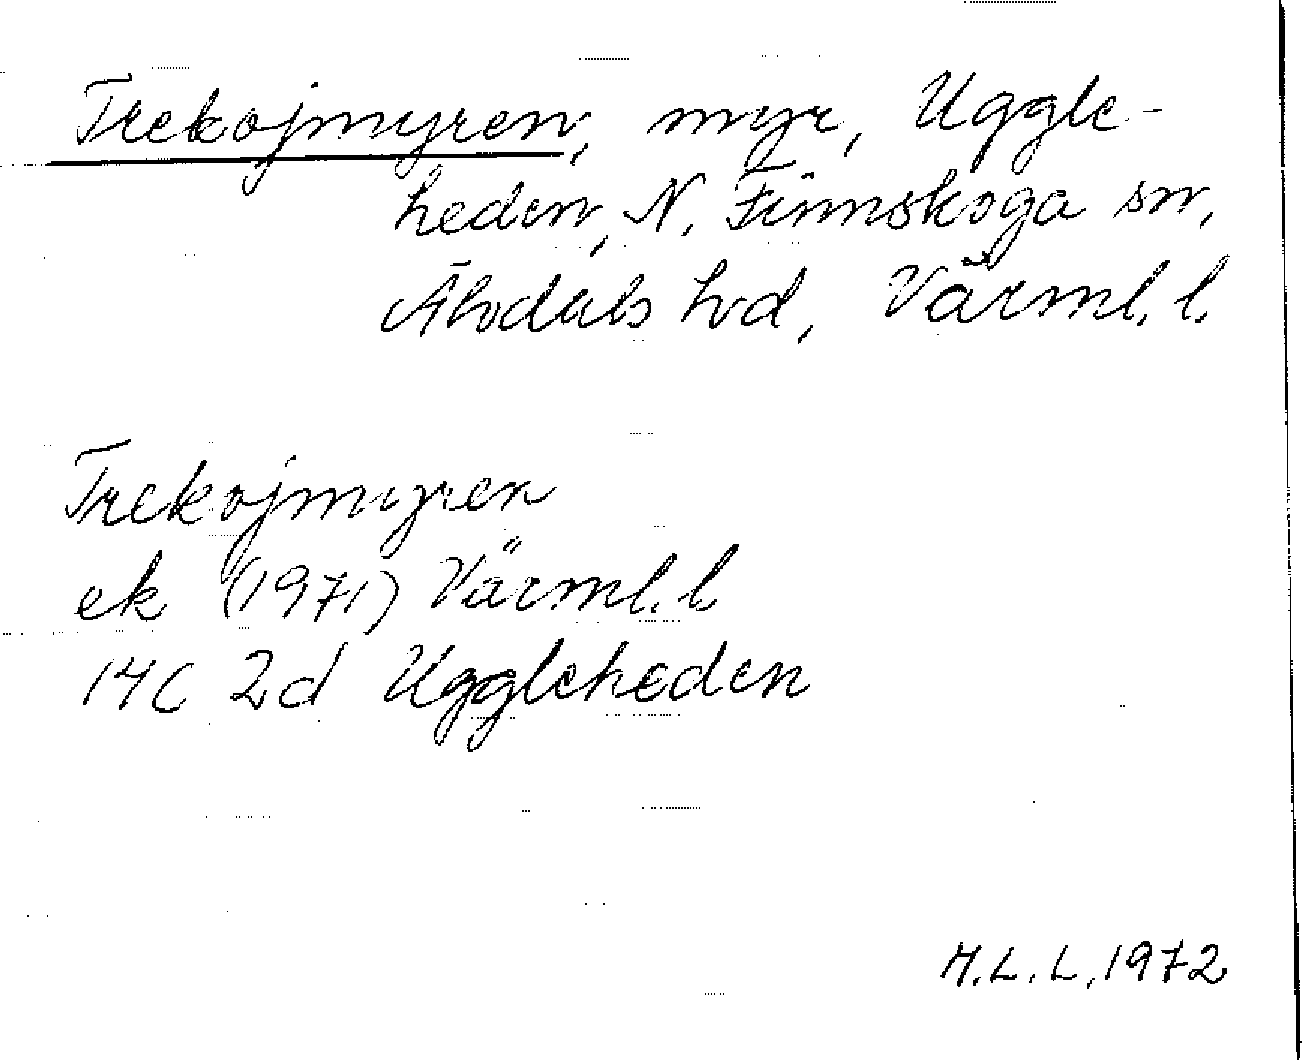 Trekojmyren, myr, Uggle-
heden, N. Finnskoga sn,
Älvdals hd, Värml. l.
Trekojmyren
ek (1971) Värml. l
14C 2d Uggleheden
M.L.L, 1972